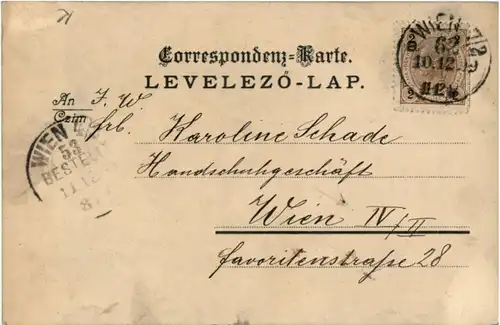 Correspondenz-Karte.
LEVELEZŐ-LAP.
An I. W.
Czím frl. Karoline Schade
Handschuhgeschäft
Wien IV/II
favoritenstraße 28
WIEN 7/2
62
10.12
WIEN
53
BESTELLT
11.12
8
2 2